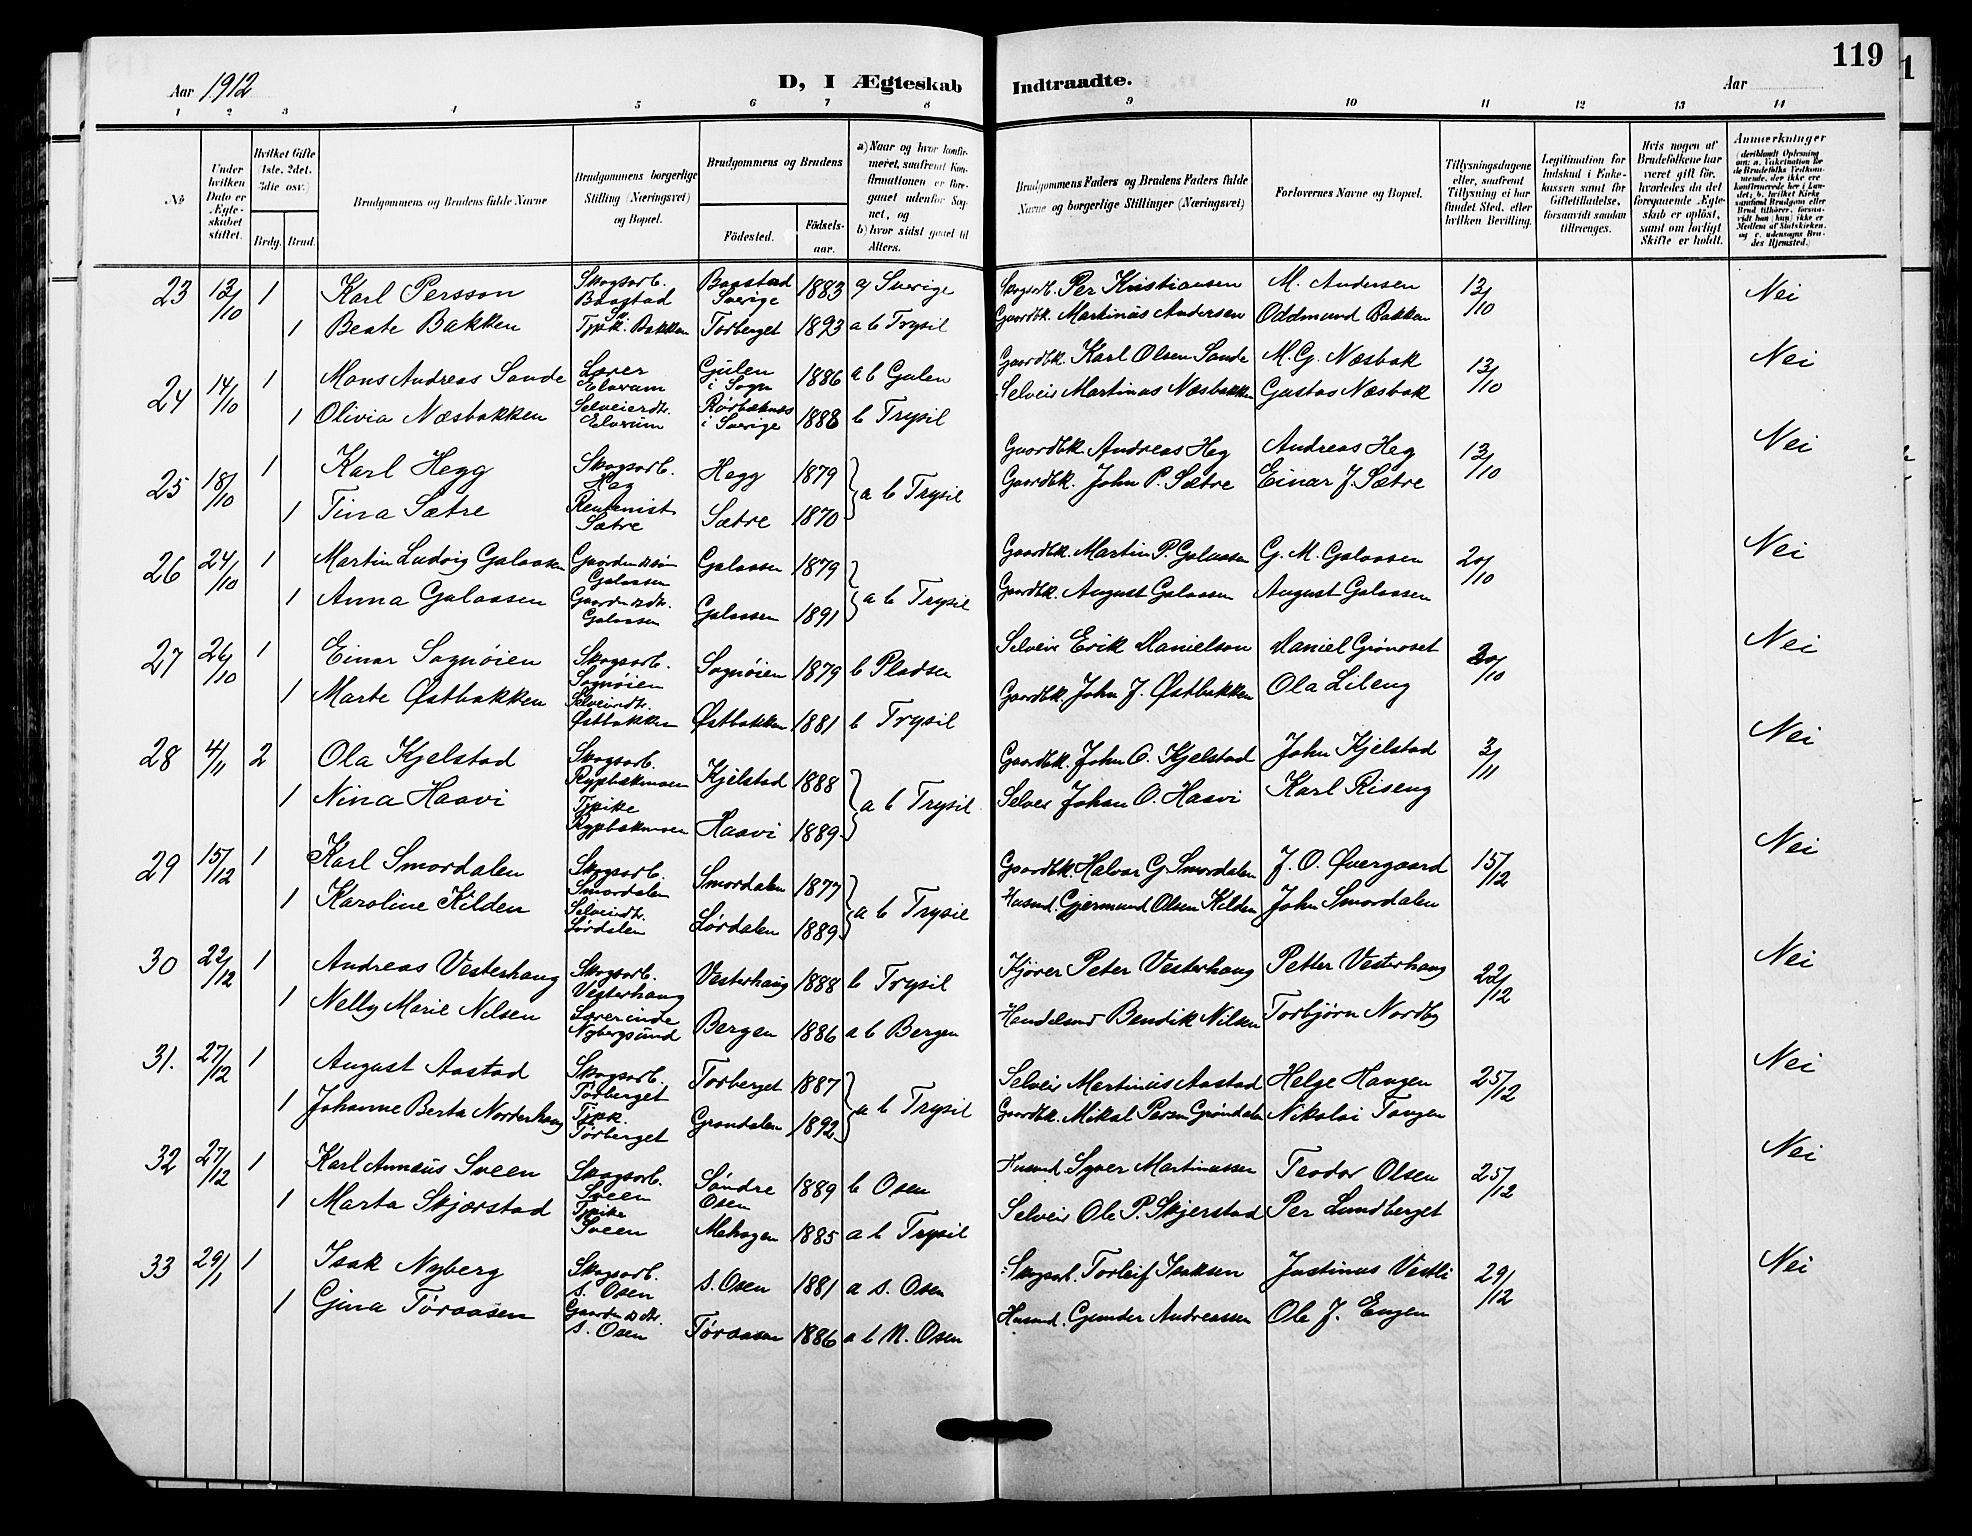 119
Aar 1912 D, I Ægteskab Indtraadte. Aar
1 2 3 4 5 6 7 8 9 10 11 12 13 14
No
Under hvilken Dato er Ægteskabet stiftet.
Hvilket Gifte (1ste, 2det, 3die osv.)
Brdg. Brud.
Brudgommens og Brudens fulde Navne
Brudgommens borgerlige Stilling (Næringsvei) og Bopæl.
Brudgommens og Brudens
Fødested. Fødsels-aar.
a) Naar og hvor konfirmeret, saafremt Konfirmationen er foregaaet udenfor Sognet, og
b) hvor sidst gaaet til Alters.
Brudgommens Faders og Brudens Faders fulde Navne og borgerlige Stillinger (Næringsvei)
Forlovernes Navne og Bopæl.
Tillysningsdagene eller, saafremt Tillysning ei har fundet Sted, efter hvilken Bevilling.
Legitimation for Indskud i Enkekassen samt for Giftetilladelse, forsaavidt saadan tiltrænges.
Hvis nogen af Brudefolkene har været gift før, hvorledes da det foregaaende Ægteskab er opløst, samt om lovligt Skifte er holdt.
Anmerkninger
23 13/10 1 Karl Persson Skogsarb. Baastad Sv. Baastad Sverige 1883 a Sverige Skogsarb. Per Kristiansen M. Andersen 13/10 Nei
1 Beate Bakken Tjpik. Bakken Torberget 1893 a b Trysil Gaardbk. Martinus Andersen Oddmund Bakken
24 14/10 1 Mons Andreas Sande Lærer Elverum Gulen i Sogn 1886 a b Gulen Gaardbk. Karl Olsen Sande M. G. Næsbak 13/10 Nei
1 Olivia Næsbakken Selveierdtr. Elverum Rörbæknes i Sverige 1888 b Trysil Selveir Martinus Næsbakken Gustav Næsbak
25 18/10 1 Karl Hegg Skogsarb. Heg Hegg 1879 } a b Trysil Gaardbk Andreas Heg Andreas Heg 13/10 Nei
1 Tina Sætre Rentenist Sætre Sætre 1870 Gaardbk. John P. Sætre Einar J. Sætre
26 24/10 1 Martin Ludvig Galaasen Gaardm.søn Galaasen Galaasen 1879 } a b Trysil Gaardbk. Martin P. Galaasen G. M. Galaasen 20/10 Nei
1 Anna Galaasen Gaardm.dtr. Galaasen Galaasen 1891 Gaardbk. August Galaasen August Galaasen
27 26/10 1 Einar Sagnøien Skogsarb. Sagnøien Sagnøien 1879 b Pladsen Selveir Erik Danielson Daniel Grønoset 20/10 Nei
1 Marte Østbakken Selveirdtr. Østbakken Østbakken 1881 b Trysil Gaardbk. John J. Østbakken Ola Lileng
28 4/11 2 Ola Kjelstad Skogsarb. Rypbækmoen Kjelstad 1888 } a b Trysil Gaardbk. John O. Kjelstad John Kjelstad 3/11 Nei
1 Nina Haavi Tjpike Rypbækmoen Haavi 1889 Selvei Johan O. Haavi Karl Riseng
29 15/12 1 Karl Smordalen Skogsarb. Smordalen Smordalen 1877 } a b Trysil Gaardbk. Halvar G. Smordalen J. O. Øvergaard 15/12 Nei
1 Karoline Kilden Selveirdtr. Lørdalen Lørdalen 1889 Husmd. Gjermund Olsen Kilden John Smordalen
30 22/12 1 Andreas Vesterhaug Skogsarb. Vesterhaug Vesterhaug 1888 b Trysil Kjører Peter Vesterhaug Petter Vesterhaug 22/12 Nei
1 Nelly Marie Nilsen Lærerinde Nybergsund Bergen 1886 a b Bergen Handelsmd Bendik Nilsen Torbjørn Nordby
31. 27/12 1 August Aastad Skogsarb. Torberget Torberget 1887 } a b Trysil Selveir Martinus Aastad Helge Haugen 25/12 Nei
1 Johanne Berta Norderhaug Tjpk. Torberget Grøndalen 1892 Gaardbk. Mikal Persen Grøndalen Nikolai Tangen
32 27/12 1 Karl Annæus Sveen Skogsarb. Sveen Søndre Osen 1889 b Osen Husmd. Syver Martinussen Teodor Olsen 25/12 Nei
1 Marta Skjærstad Tjpike Sveen Mehagen 1885 a b Trysil Selveir Ole P. Skjerstad Per Lundberget
33 29/1 1 Isak Nyberg Skogsarb. S. Osen S. Osen 1881 a S. Osen Skogsarb. Torleif Isaksen Justinus Vestli 29/12 Nei
1 Gjina Tøraasen Gaardm.dtr. S. Osen Tøraasen 1886 a b N. Osen Husmd. Gunder Andreassen Ole J. Engen